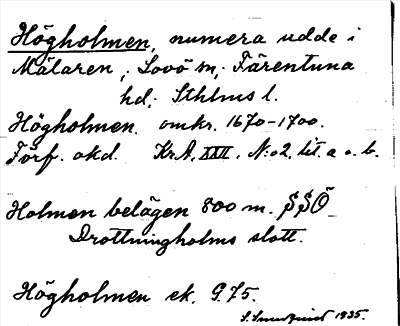 Högholmen, numera udde i
Mälaren, Lovö sn, Färentuna
hd, Sthlms l.
Högholmen. omkr. 1670-1700.
Förf. okd. KrA, XXII, N:o 2, lit. a o. b.
Holmen belägen 800 m. SSÖ
Drottningholms slott.
Högholmen ek. G.75.
S. 1935.